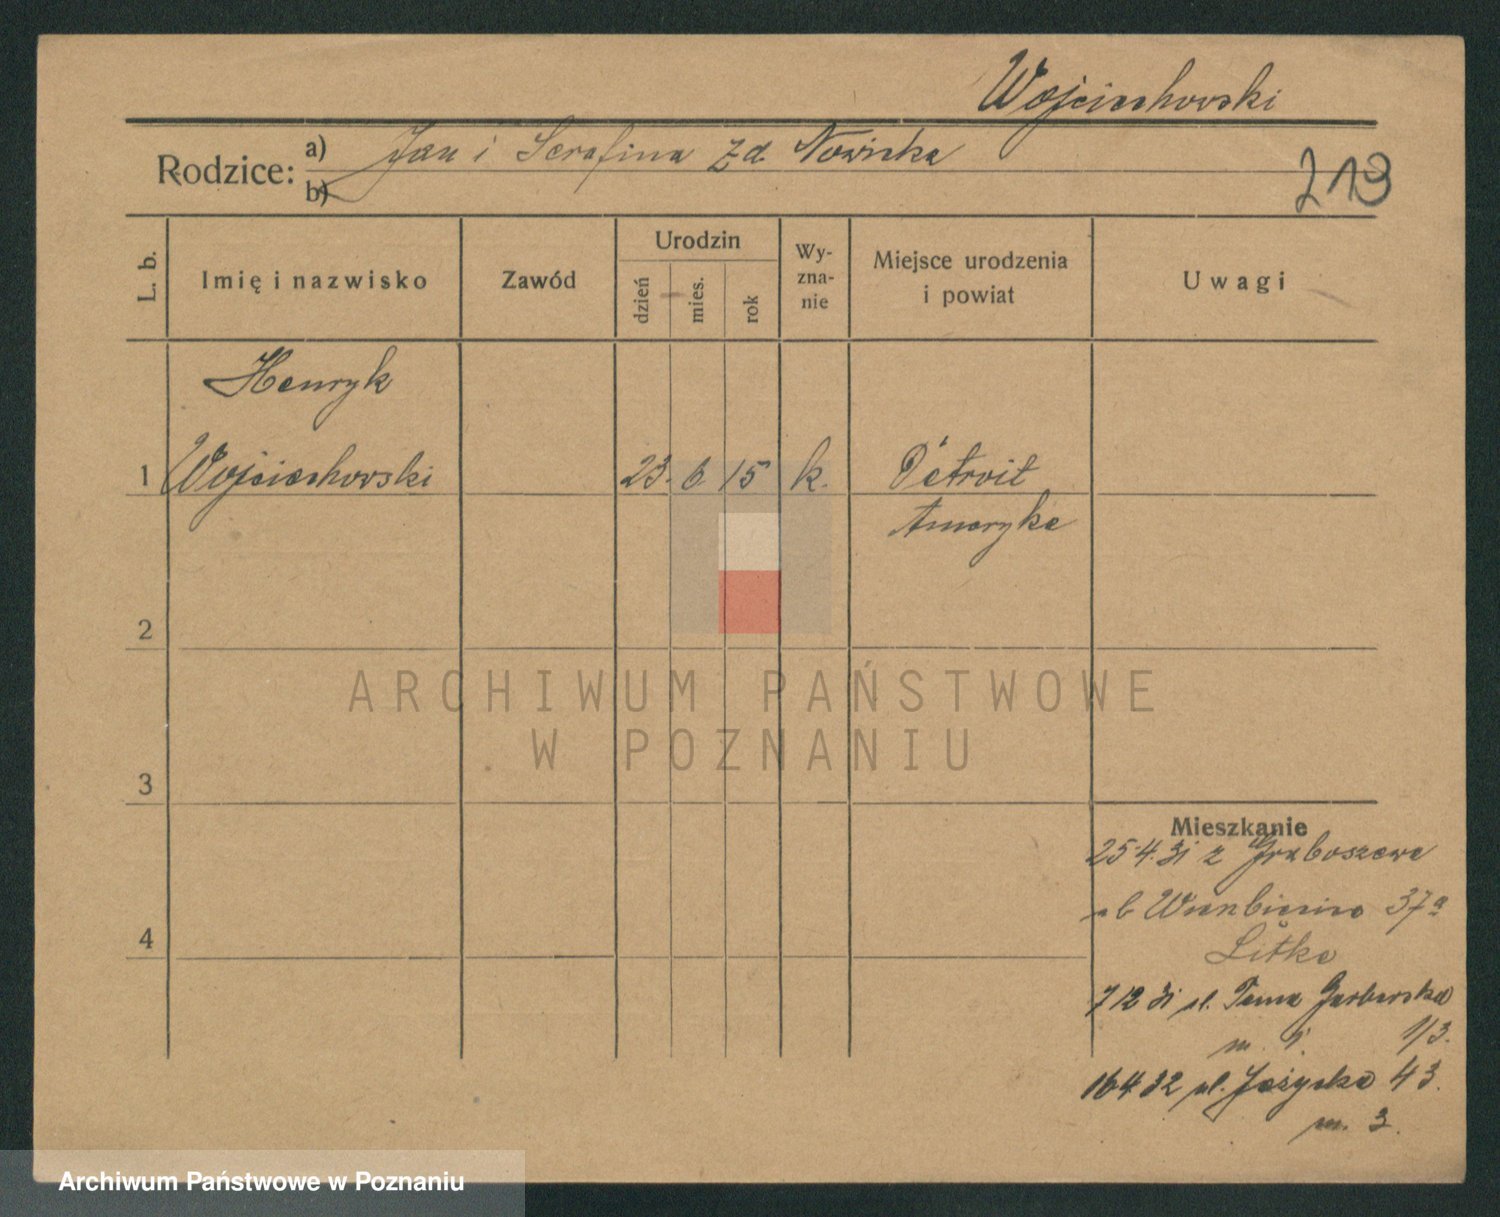 Wojciechowski
Rodzice: a) Jan i Serafina zd. Nowicka
b)
213
L. b.
Imię i nazwisko
Zawód
Urodzin
dzień
mies.
rok
Wy-
zna-
nie
Miejsce urodzenia
i powiat
Uwagi
Henryk
1 Wojciechowski 23. 6. 15 k. Detroit
Ameryka
2
3
4
Mieszkanie
25.4.31 z Graboszewa
ul. Wierzbięcice 37a
Litka
7 12 31 ul. Tama Garbarska
m. 1. 1/3.
16 4 32 ul. Jeżycka 43.
m. 3.
ARCHIWUM PAŃSTWOWE
W POZNANIU
Archiwum Państwowe w Poznaniu